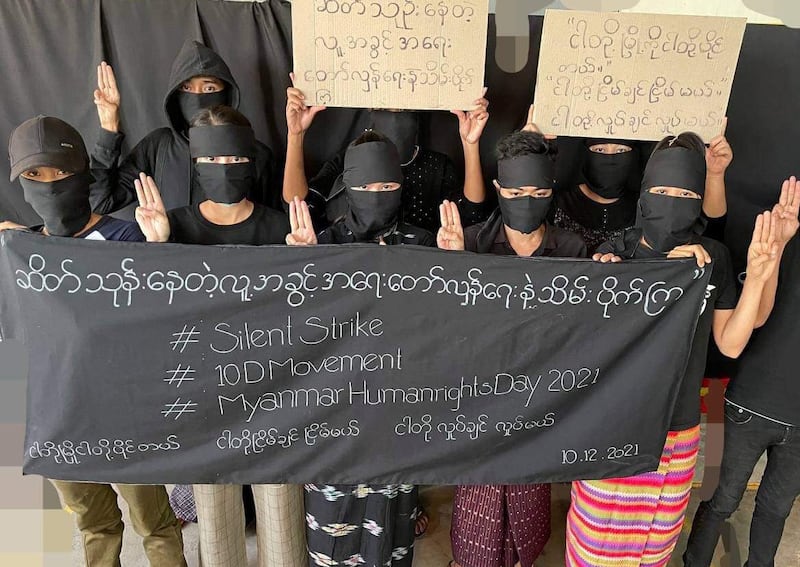 ဆိတ်သုဉ်းနေတဲ့
လူ့အခွင့်အရေး
တော်လှန်ရေးနဲ့သိမ်းပိုက်
ကြ
"ငါတို့မြို့ကိုငါတို့ပိုင်
တယ်။"
"ငါတို့ငြိမ်ချင်ငြိမ်မယ်။"
ငါတို့လှုပ်ချင်လှုပ်မယ်
ဆိတ်သုန်းနေတဲ့လူ့အခွင့်အရေးတော်လှန်ရေးနဲ့သိမ်းပိုက်ကြ
# Silent Strike
# 10D Movement
# MyanmarHumanrightsDay 2021
ငါတို့မြို့ငါတို့ပိုင်တယ် ငါတို့ငြိမ်ချင်ငြိမ်မယ် ငါတို့လှုပ်ချင်လှုပ်မယ်
10.12.2021